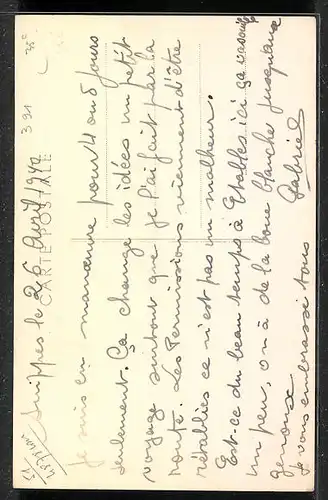 CARTE POSTALE
391
Suippes le 26 Avril 1940
Je suis en manœuvre pour 4 ou 5 jours
seulement. Ça change les idées un petit
voyage surtout que je l'ai fait par la
route. Les Permissions viennent d'être
rétablies ce n'est pas un malheur.
Est-ce du beau temps à Etables ici ça
un peu, on a de la boue blanche jusqu'aux
genoux.
Je vous embrasse tous
Gabriel